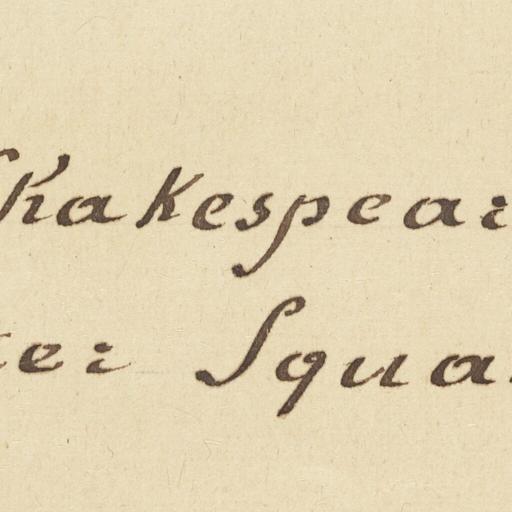 Shakespear
ter Squa